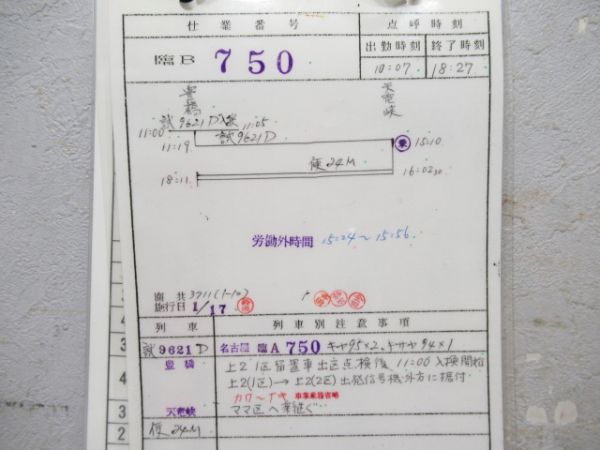 仕業番号 点呼時刻
臨B 750 出勤時刻 終了時刻
10:07 18:27
豊橋 天竜峡
試9621D入換 11:05
11:00 試9621D
11:19 乗 15:10
便24M
18:11 16:02
労働外時間 15:24～15:56
施行日 1/17
列車 列車別注意事項
3 試9621D 名古屋 臨A750 キヤ95×2、キサヤ94×1
豊橋 上2 1区留置車出区点検後 11:00入換開始
4 上2(1区)→上2(2区)出発信号機外方に据付
カワ～ナサ 車業無線省略
3 天竜峡 ママ区へ乗継ぐ
2 便24M